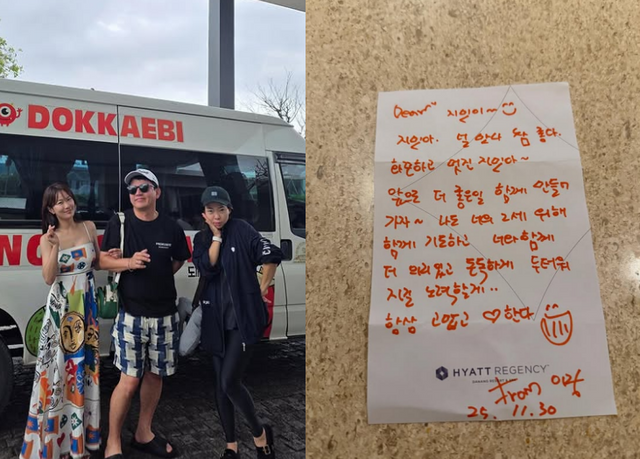 DOKKAEBI
Dear~ 지일이~
지일아. 널 안다 참 좋다.
화끈하고 멋진 지일아~
앞으로 더 좋은일 함께 만들어
가자~ 나도 너의 2세 위해
함께 기도하고 너와함께
더 재미있고 돈독하게 두터워
지길 노력할게..
항상 고맙고 ♡한다
HYATT REGENCY
From
25. 11. 30